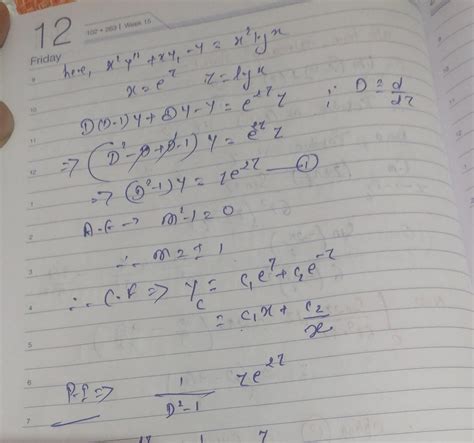 12
102 • 263 | Week 15
Friday
here, x²y'' + xy₁ - y = x² log x
x = e^z z = log x
D(D-1)y + Dy - y = e^{2z} z ; D ≡ d/dz
⇒ (D² - D + D - 1) y = e^{2z} z
⇒ (D² - 1) y = z e^{2z} — ①
A.E → m² - 1 = 0
∴ m = ± 1
∴ C.F ⇒ y_c = c₁e^z + c₂e^{-z}
= c₁x + c₂/x
P.I ⇒ 1/(D² - 1) z e^{2z}